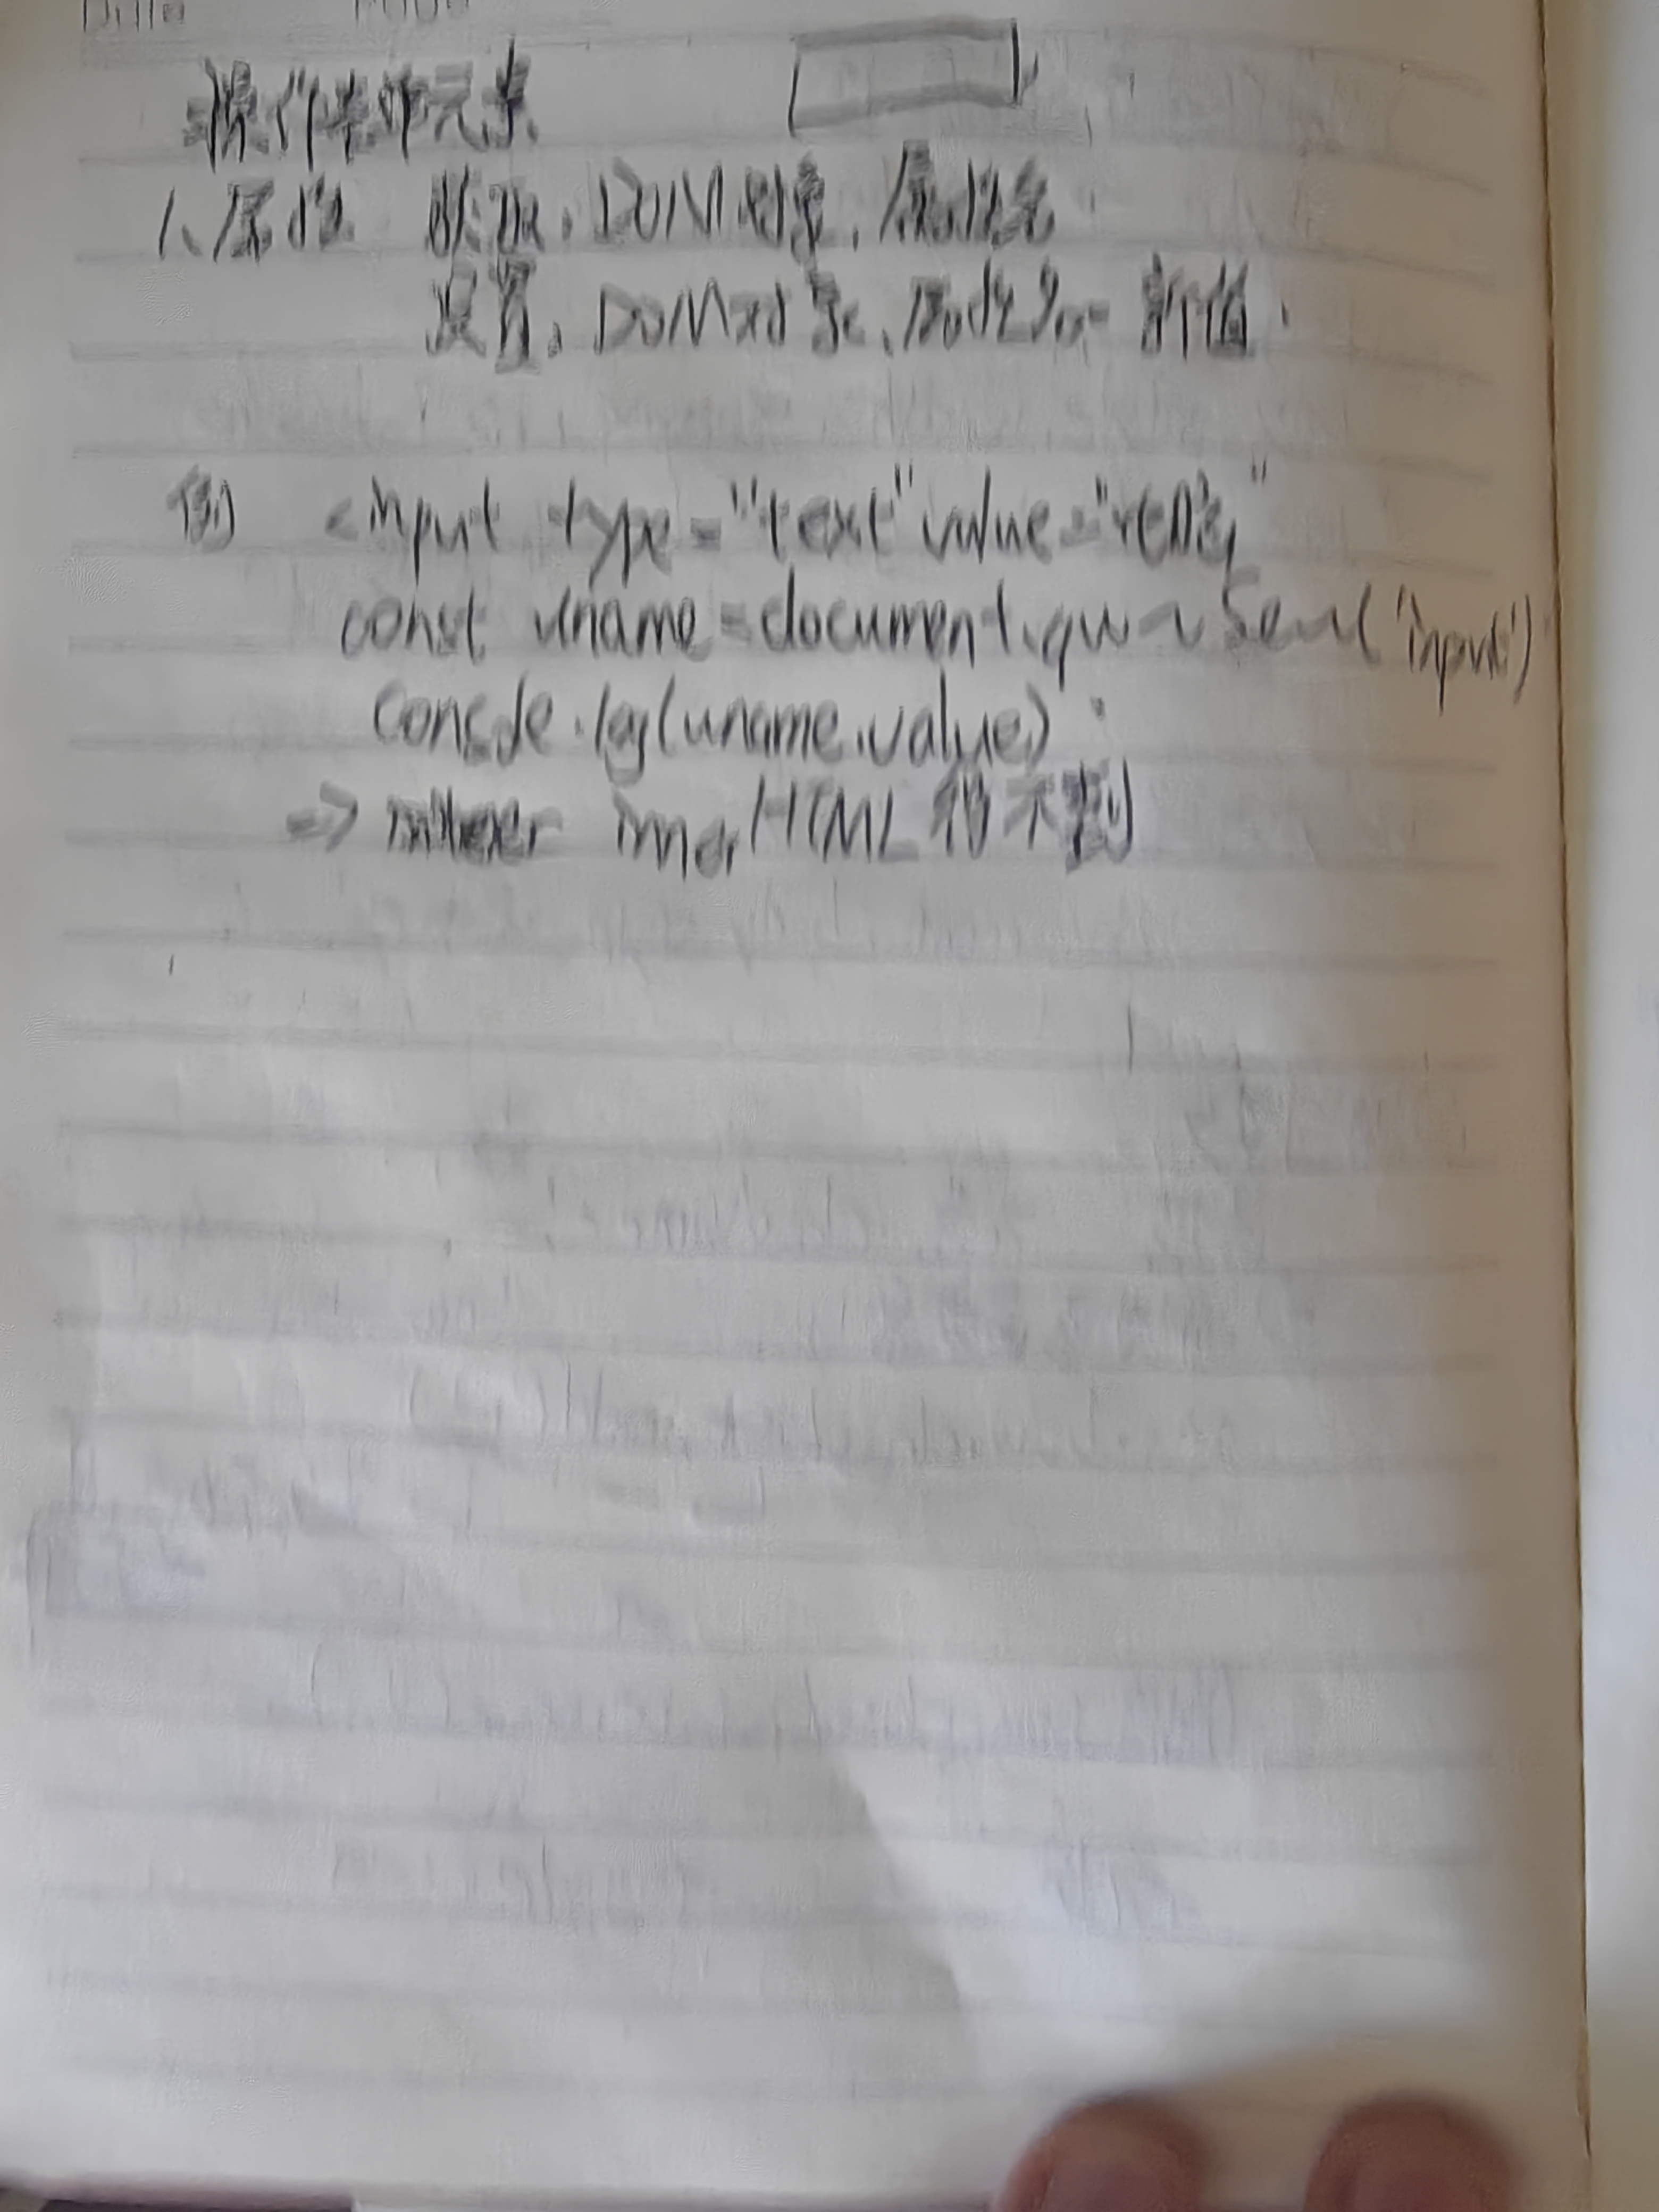 操作表单元素
1、属性 获取：DOM对象.属性名
设置：DOM对象.属性名= 新值
例 <input type="text" value="
const uname=document.('input')
console.log(uname.value)
=> innerHTML得不到